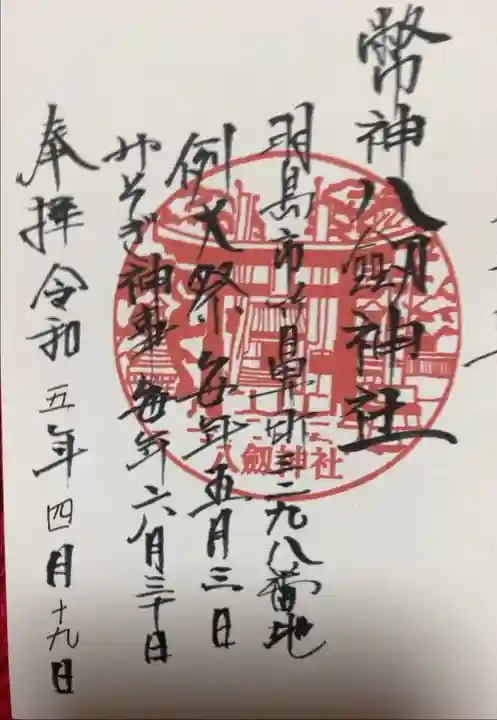 幣神八劔神社
羽島市竹鼻町三二九八番地
例大祭 毎年五月三日
みそぎ神事 毎年六月三十日
奉拝 令和五年四月十九日
八劔神社